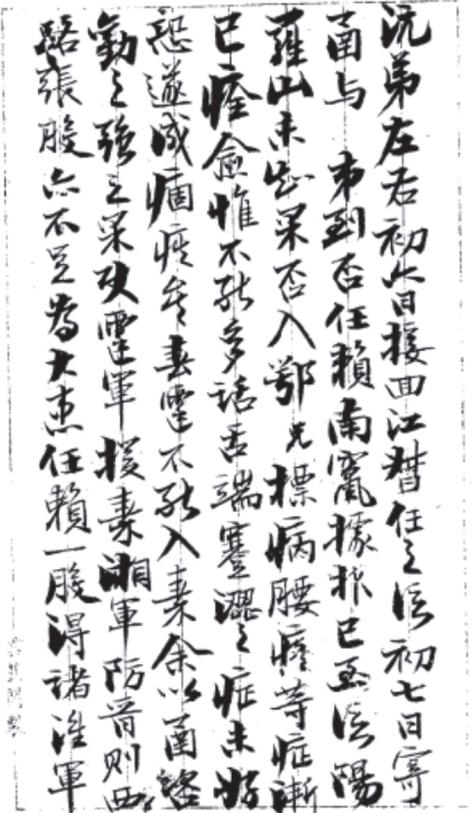 沅弟左右初六日接回江督任之信初七日寄
函与弟到否任賴南竄據报已至信陽
羅山未知果否入鄂兄標病腰疼等症漸
已痊愈惟不能多話舌端蹇澀之症未好
恐遂成痼疾矣春霆不能入秦余以函諮
勸之強之果使霆軍援秦湘軍防晉則西
路張股亦不足為大患任賴一股得諸淮軍